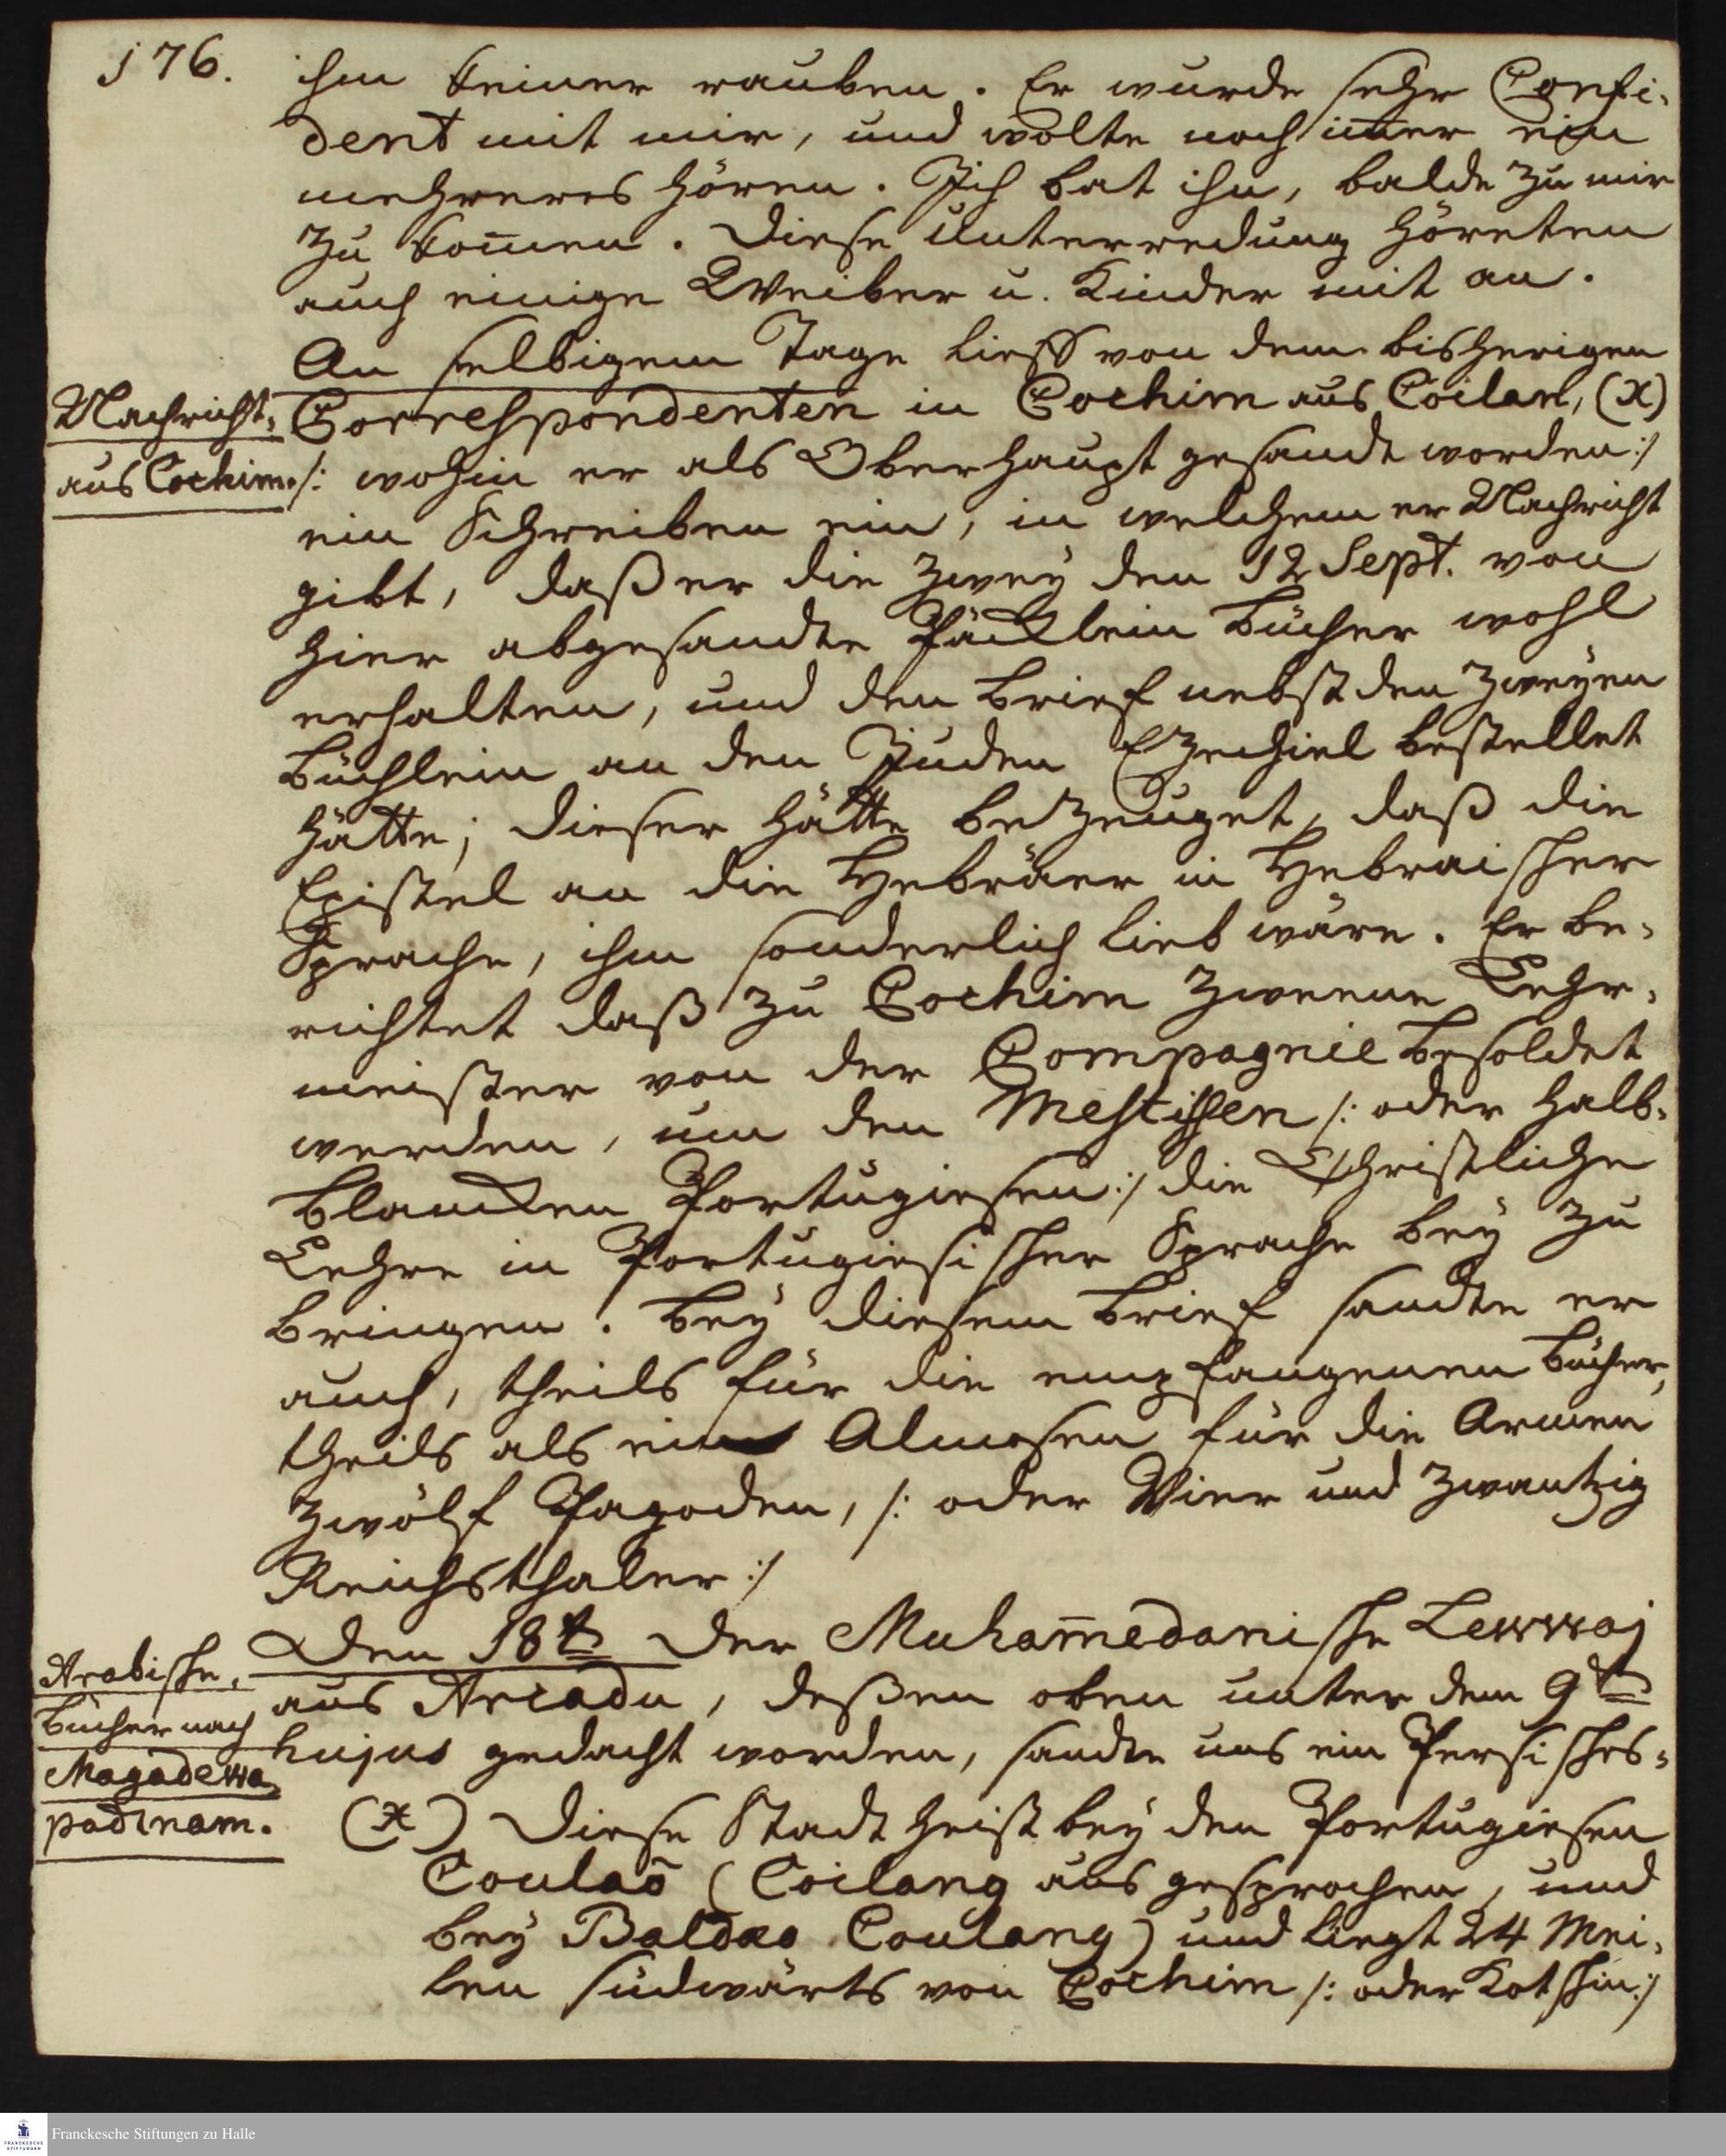 176.
ihm keiner rauben. Er wurde sehr Confi-
dent mit mir, und wolte noch im̄er ein
mehreres hören. Ich bat ihn, balde zu mir
zu kom̄en. Diese Unterredung höreten
auch einige Weiber u. Kinder mit an.
An selbigem Tage lieff von dem bisherigen
Nachricht-
aus Cochim.
Correspondenten in Cochim aus Coilan, (x)
/: wohin er als Oberhaupt gesandt worden :/
ein Schreiben ein, in welchem er Nachricht
gibt, daß er die zwey den 12 Sept. von
hier abgesandte Päcklein Bücher wohl
erhalten, und den Brief nebst den zweyen
Büchlein an den Juden Ezechiel bestellet
hätte; dieser hätte bezeuget, daß die
Epistel an die Hebräer in Hebraischer
Sprache, ihm sonderlich lieb wäre. Er be-
richtet daß zu Cochim zweene Lehr-
meister von der Compagnie besoldet
werden, um den Mestissen /: oder halb-
blancken Portugiesen :/ die Christliche
Lehre in Portugiesischer Sprache bey zu
bringen. Bey diesem Brief sandte er
auch, theils für die empfangenen Bücher,
theils als ein Almosen für die Armen
zwölf Pagoden, /: oder Vier und zwantzig
Reichsthaler :/
Arabische-
Bücher nach
Magadewa
padtnam.
Den 18t. Der Muham̄edanische Lewwaj
aus Arcadu, deßen oben unter dem 9t.
hujus gedacht worden, sandte uns ein Persisches-
(x) Diese Stadt heist bey den Portugiesen
Coulaõ (Coilang ausgesprochen, und
bey Baldao Coulang) und liegt 24 Mei-
len südwärts von Cochim /: oder Kotschin :/
Franckesche Stiftungen zu Halle
FRANCKESCHE
STIFTUNGEN